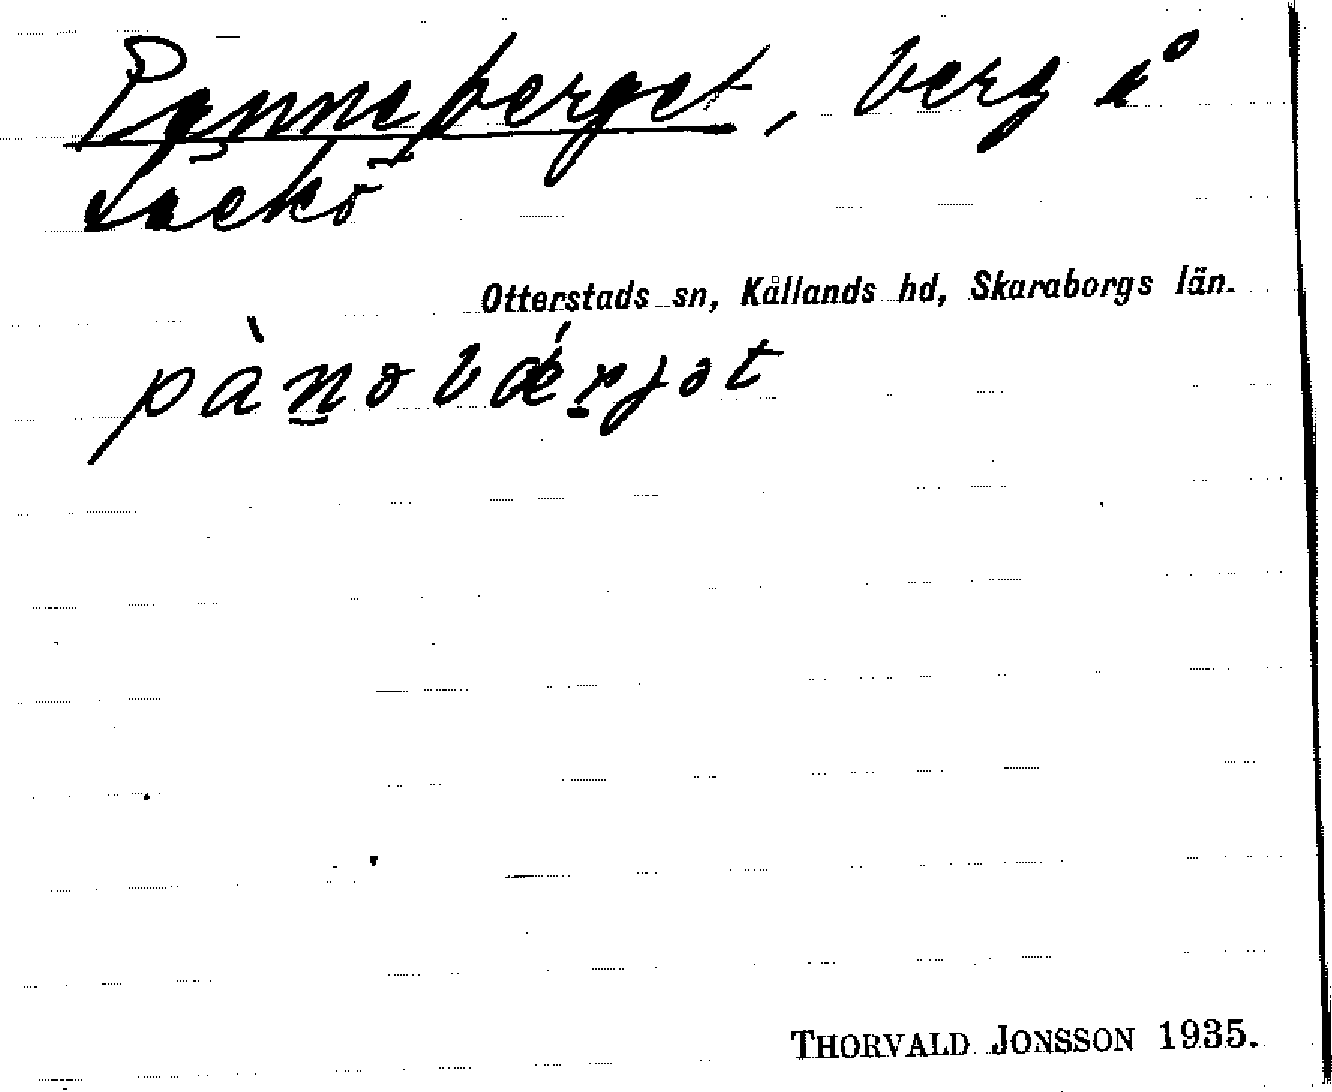 Panneberget, berg å
Läckö
Otterstads sn, Kållands hd, Skaraborgs län.
pànə bǽrjət
THORVALD JONSSON 1935.